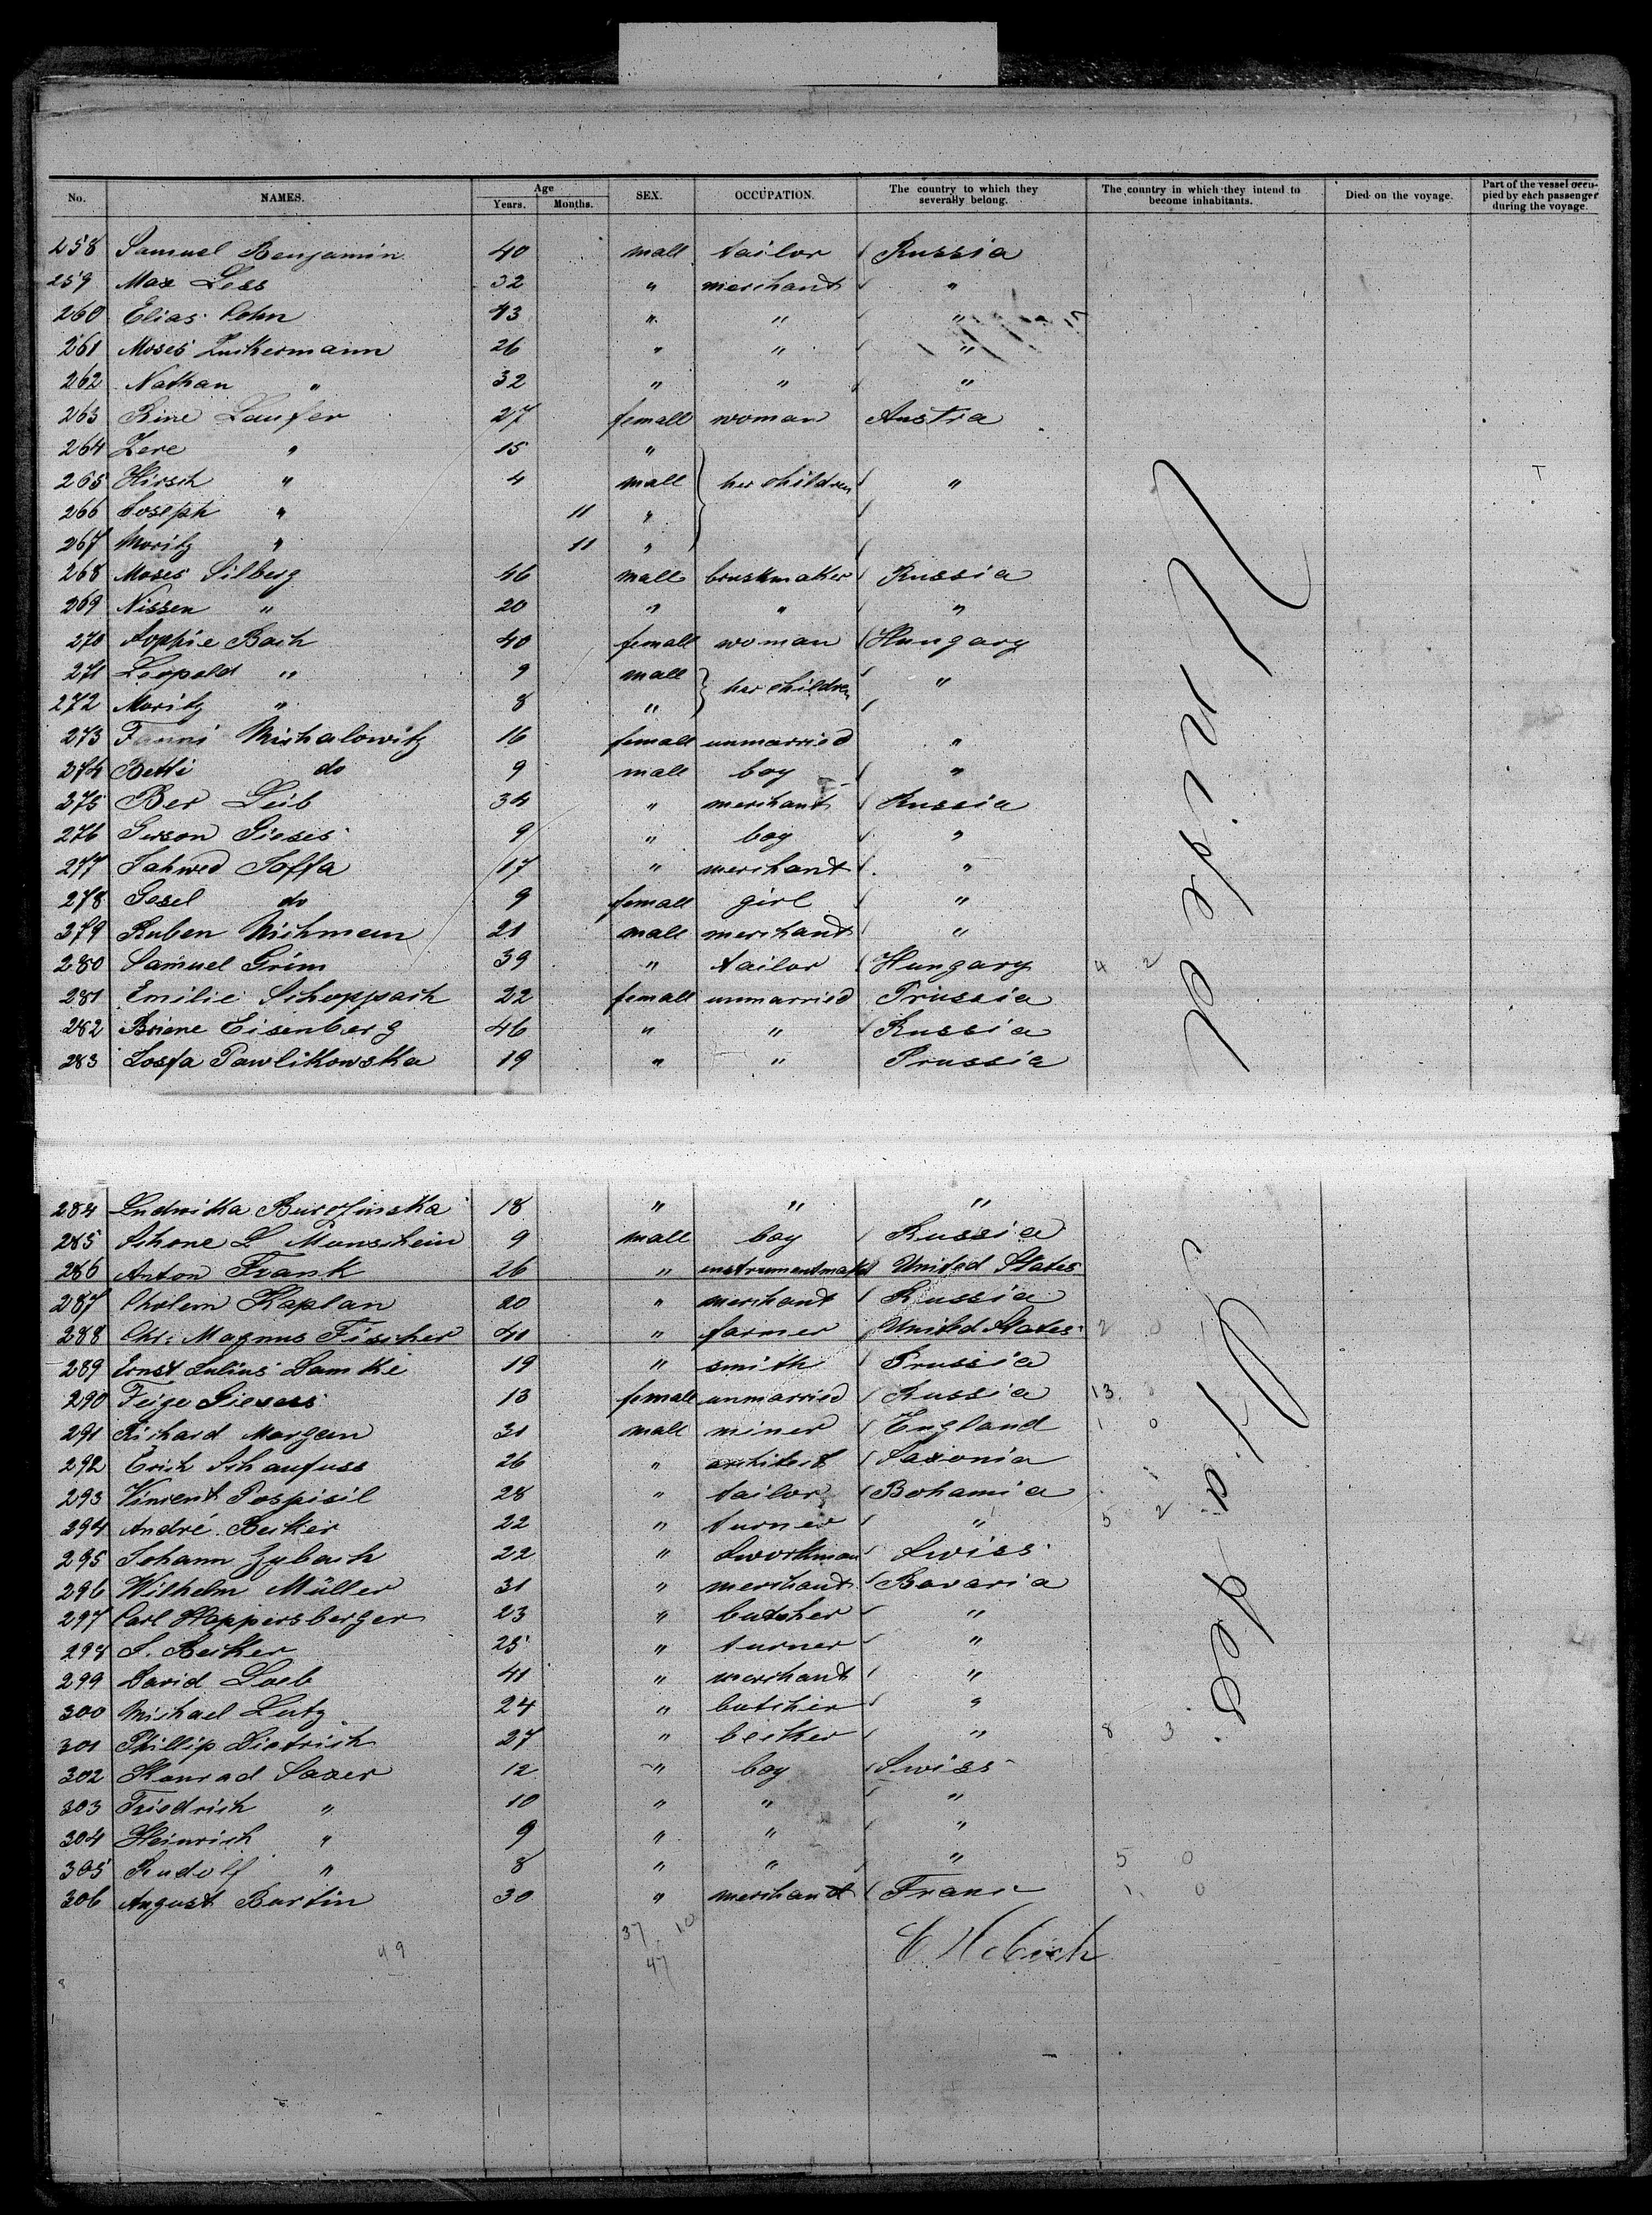 No. NAMES. Age Years. Months. SEX. OCCUPATION. The country to which they severally belong. The country in which they intend to become inhabitants. Died on the voyage. Part of the vessel occupied by each passenger during the voyage.
258 Samuel Benjamin 40 mall tailor Russia
259 Max Less 32 " merchant "
260 Elias Cohn 43 " " "
261 Moses Zuckermann 26 " " "
262 Nathan " 32 " " "
263 Rine Laufer 27 femall woman Austria
264 Zere " 15 "
265 Hirsch " 4 mall her children "
266 Joseph " 11 "
267 Moritz " 11 "
268 Moses Silberg 46 mall brushmaker Russia
269 Nissen " 20 " " "
270 Sophie Bach 40 femall woman Hungary
271 Leopold " 9 mall her children "
272 Moritz " 8 "
273 Fanni Michalowitz 16 femall unmarried "
274 Betti do 9 mall boy "
275 Ber Leib 34 " merchant Russia
276 Gerson Gieses 9 " boy "
277 Jahwed Joffa 17 " merchant "
278 Gesel do 9 femall girl "
279 Ruben Michmann 21 mall merchant "
280 Samuel Grim 39 " tailor Hungary 4 2
281 Emilie Schoppach 22 femall unmarried Prussia
282 Briene Eisenberg 46 " " Russia
283 Josfa Pawlikowska 19 " " Prussia
United
284 Ludwika Burozinska 18 " " "
285 Schone L Monschein 9 mall boy Russia
286 Anton Frank 26 " instrumentmaker United States
287 Cholem Kaplan 20 " merchant Russia
288 Chr: Magnus Fischer 41 " farmer United States 2 0
289 Ernst Julius Damke 19 " smith Prussia
290 Feige Gieses 13 femall unmarried Russia 13
291 Richard Morgan 31 mall miner England 1 0
292 Erich Schaufuss 26 " architect Saxonia
293 Vincent Pospisil 28 " tailor Bohamia
294 André Becker 22 " turner " 5 2
295 Johann Zybach 22 " Workman Swiss
296 Wilhelm Müller 31 " merchant Bavaria
297 Carl Hoppersberger 23 " butcher "
298 J. Becker 25 " turner "
299 David Loeb 41 " merchant "
300 Michael Lutz 24 " butcher "
301 Phillip Dietrich 27 " becker " 8 3
302 Konrad Saxer 12 " boy Swiss
303 Friedrich " 10 " " "
304 Heinrich " 9 " " "
305 Rudolf " 8 " " " 5 0
306 August Bartin 30 " merchant Franc 1 0
States
37 10
49 47